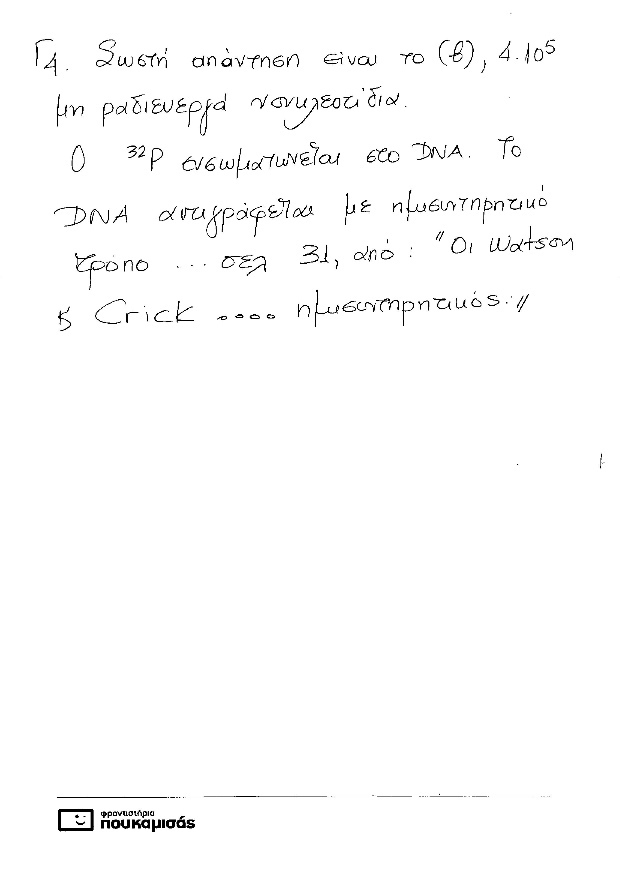 Γ4. Σωστή απάντηση είναι το (β), 4·10⁵
μη ραδιενεργά νουκλεοτίδια.
Ο ³²P ενσωματώνεται στο DNA. Το
DNA αντιγράφεται με ημισυντηρητικό
τρόπο ... σελ 31, από: "Οι Watson
& Crick .... ημισυντηρητικός."
φροντιστήρια
πουκαμισάς